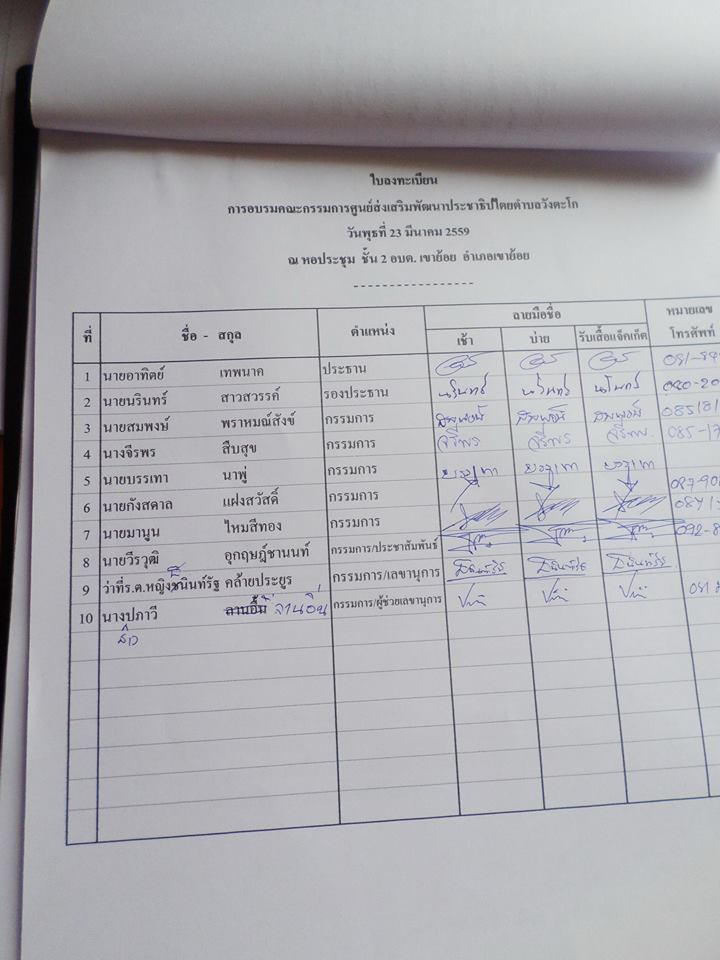 ใบลงทะเบียน
การอบรมคณะกรรมการศูนย์ส่งเสริมพัฒนาประชาธิปไตยตำบลวังตะโก
วันพุธที่ 23 มีนาคม 2559
ณ หอประชุม ชั้น 2 อบต. เขาย้อย อำเภอเขาย้อย
----------------
ที่ ชื่อ - สกุล ตำแหน่ง ลายมือชื่อ หมายเลข
เช้า บ่าย รับเสื้อแจ็กเก็ต โทรศัพท์
1 นายอาทิตย์ เทพนาค ประธาน
2 นายนรินทร์ สาวสวรรค์ รองประธาน นรินทร์ นรินทร์ นรินทร์
3 นายสมพงษ์ พราหมณ์สังข์ กรรมการ สมพงษ์ สมพงษ์ สมพงษ์
4 นางจีรพร สืบสุข กรรมการ จีรพร จีรพร จีรพร
5 นายบรรเทา นาพู่ กรรมการ บรรเทา บรรเทา บรรเทา
6 นายกังสดาล แฝงสวัสดิ์ กรรมการ
7 นายมานูน ไหมสีทอง กรรมการ
8 นายวีรวุฒิ อุกฤษฎ์ชานนท์ กรรมการ/ประชาสัมพันธ์
9 ว่าที่ร.ต.หญิงชนินท์รัฐ คล้ายประยูร กรรมการ/เลขานุการ
10 นางปภาวี ลานอื้น กรรมการ/ผู้ช่วยเลขานุการ